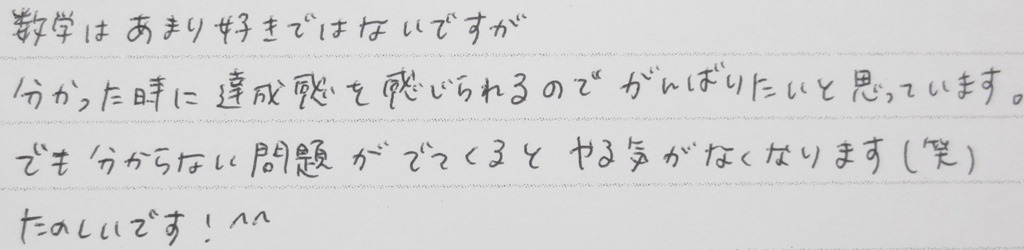 数学はあまり好きではないですが
分かった時に達成感を感じられるのでがんばりたいと思っています。
でも分からない問題がでてくるとやる気がなくなります(笑)
たのしいです!^^